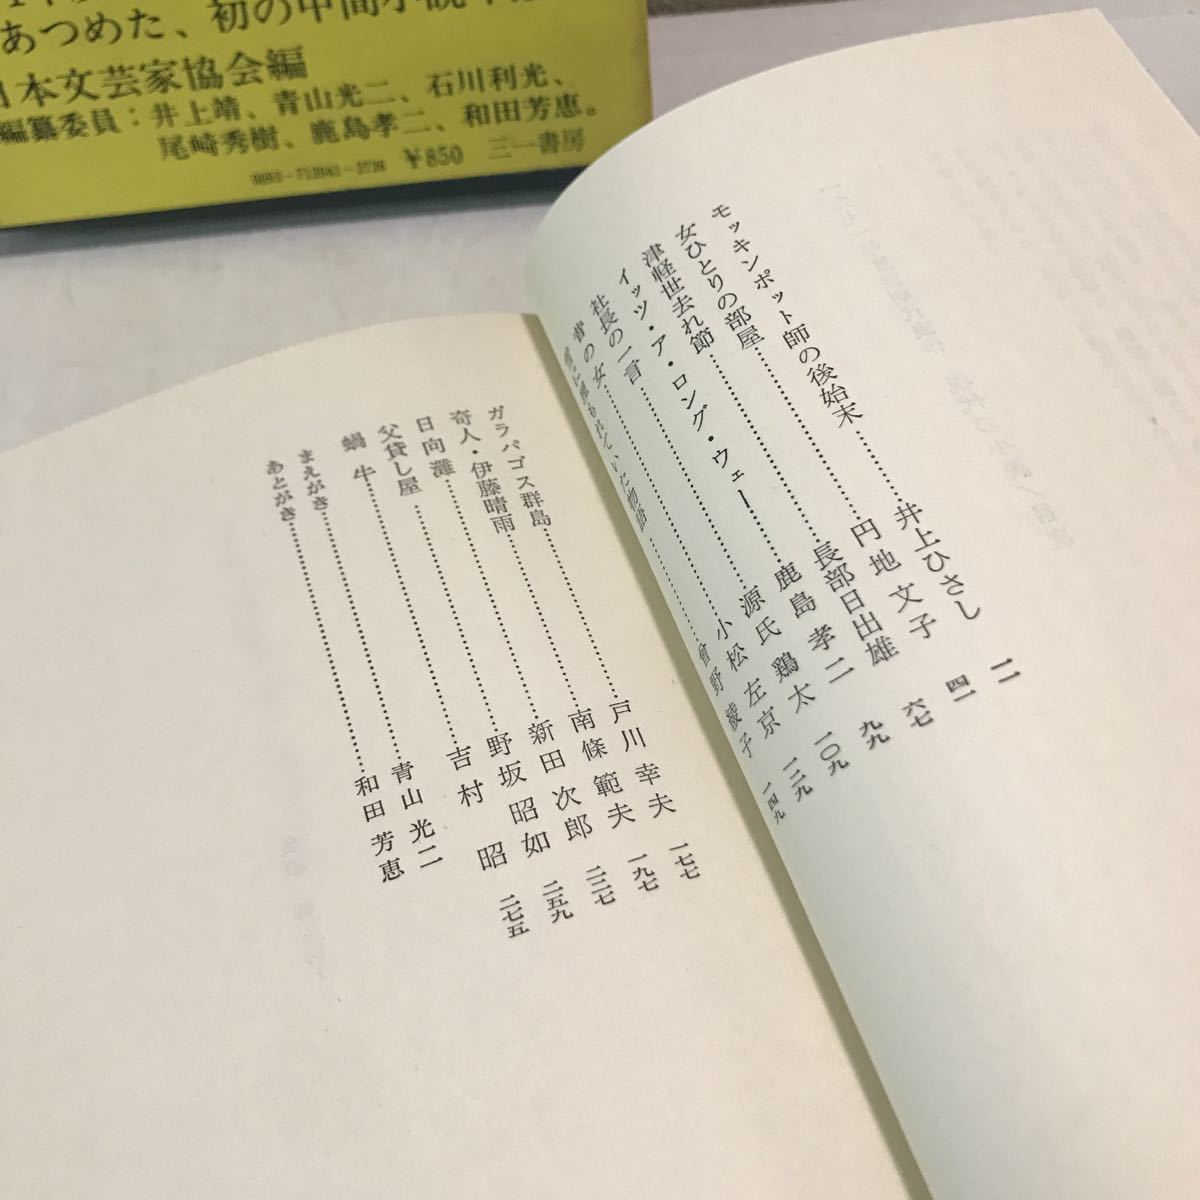 あつめた、初の中間小説
日本文芸家協会編
編纂委員：井上靖、青山光二、石川利光、
尾崎秀樹、鹿島孝二、和田芳恵。
¥850 三一書房
モッキンポット師の後始末……井上ひさし 一一
女ひとりの部屋……円地文子 四一
津軽世去れ節……長部日出雄 六七
イッツ・ア・ロング・ウェー……鹿島孝二 九九
社長の一言……源氏鶏太 一〇九
昔の女……小松左京 一二九
れていた物語……曾野綾子 一四九
ガラパゴス群島……戸川幸夫 一七七
奇人・伊藤晴雨……南條範夫 一九七
日向灘……新田次郎 二三七
父貸し屋……野坂昭如 二五九
蝸牛……吉村昭 二七五
まえがき……青山光二
あとがき……和田芳恵